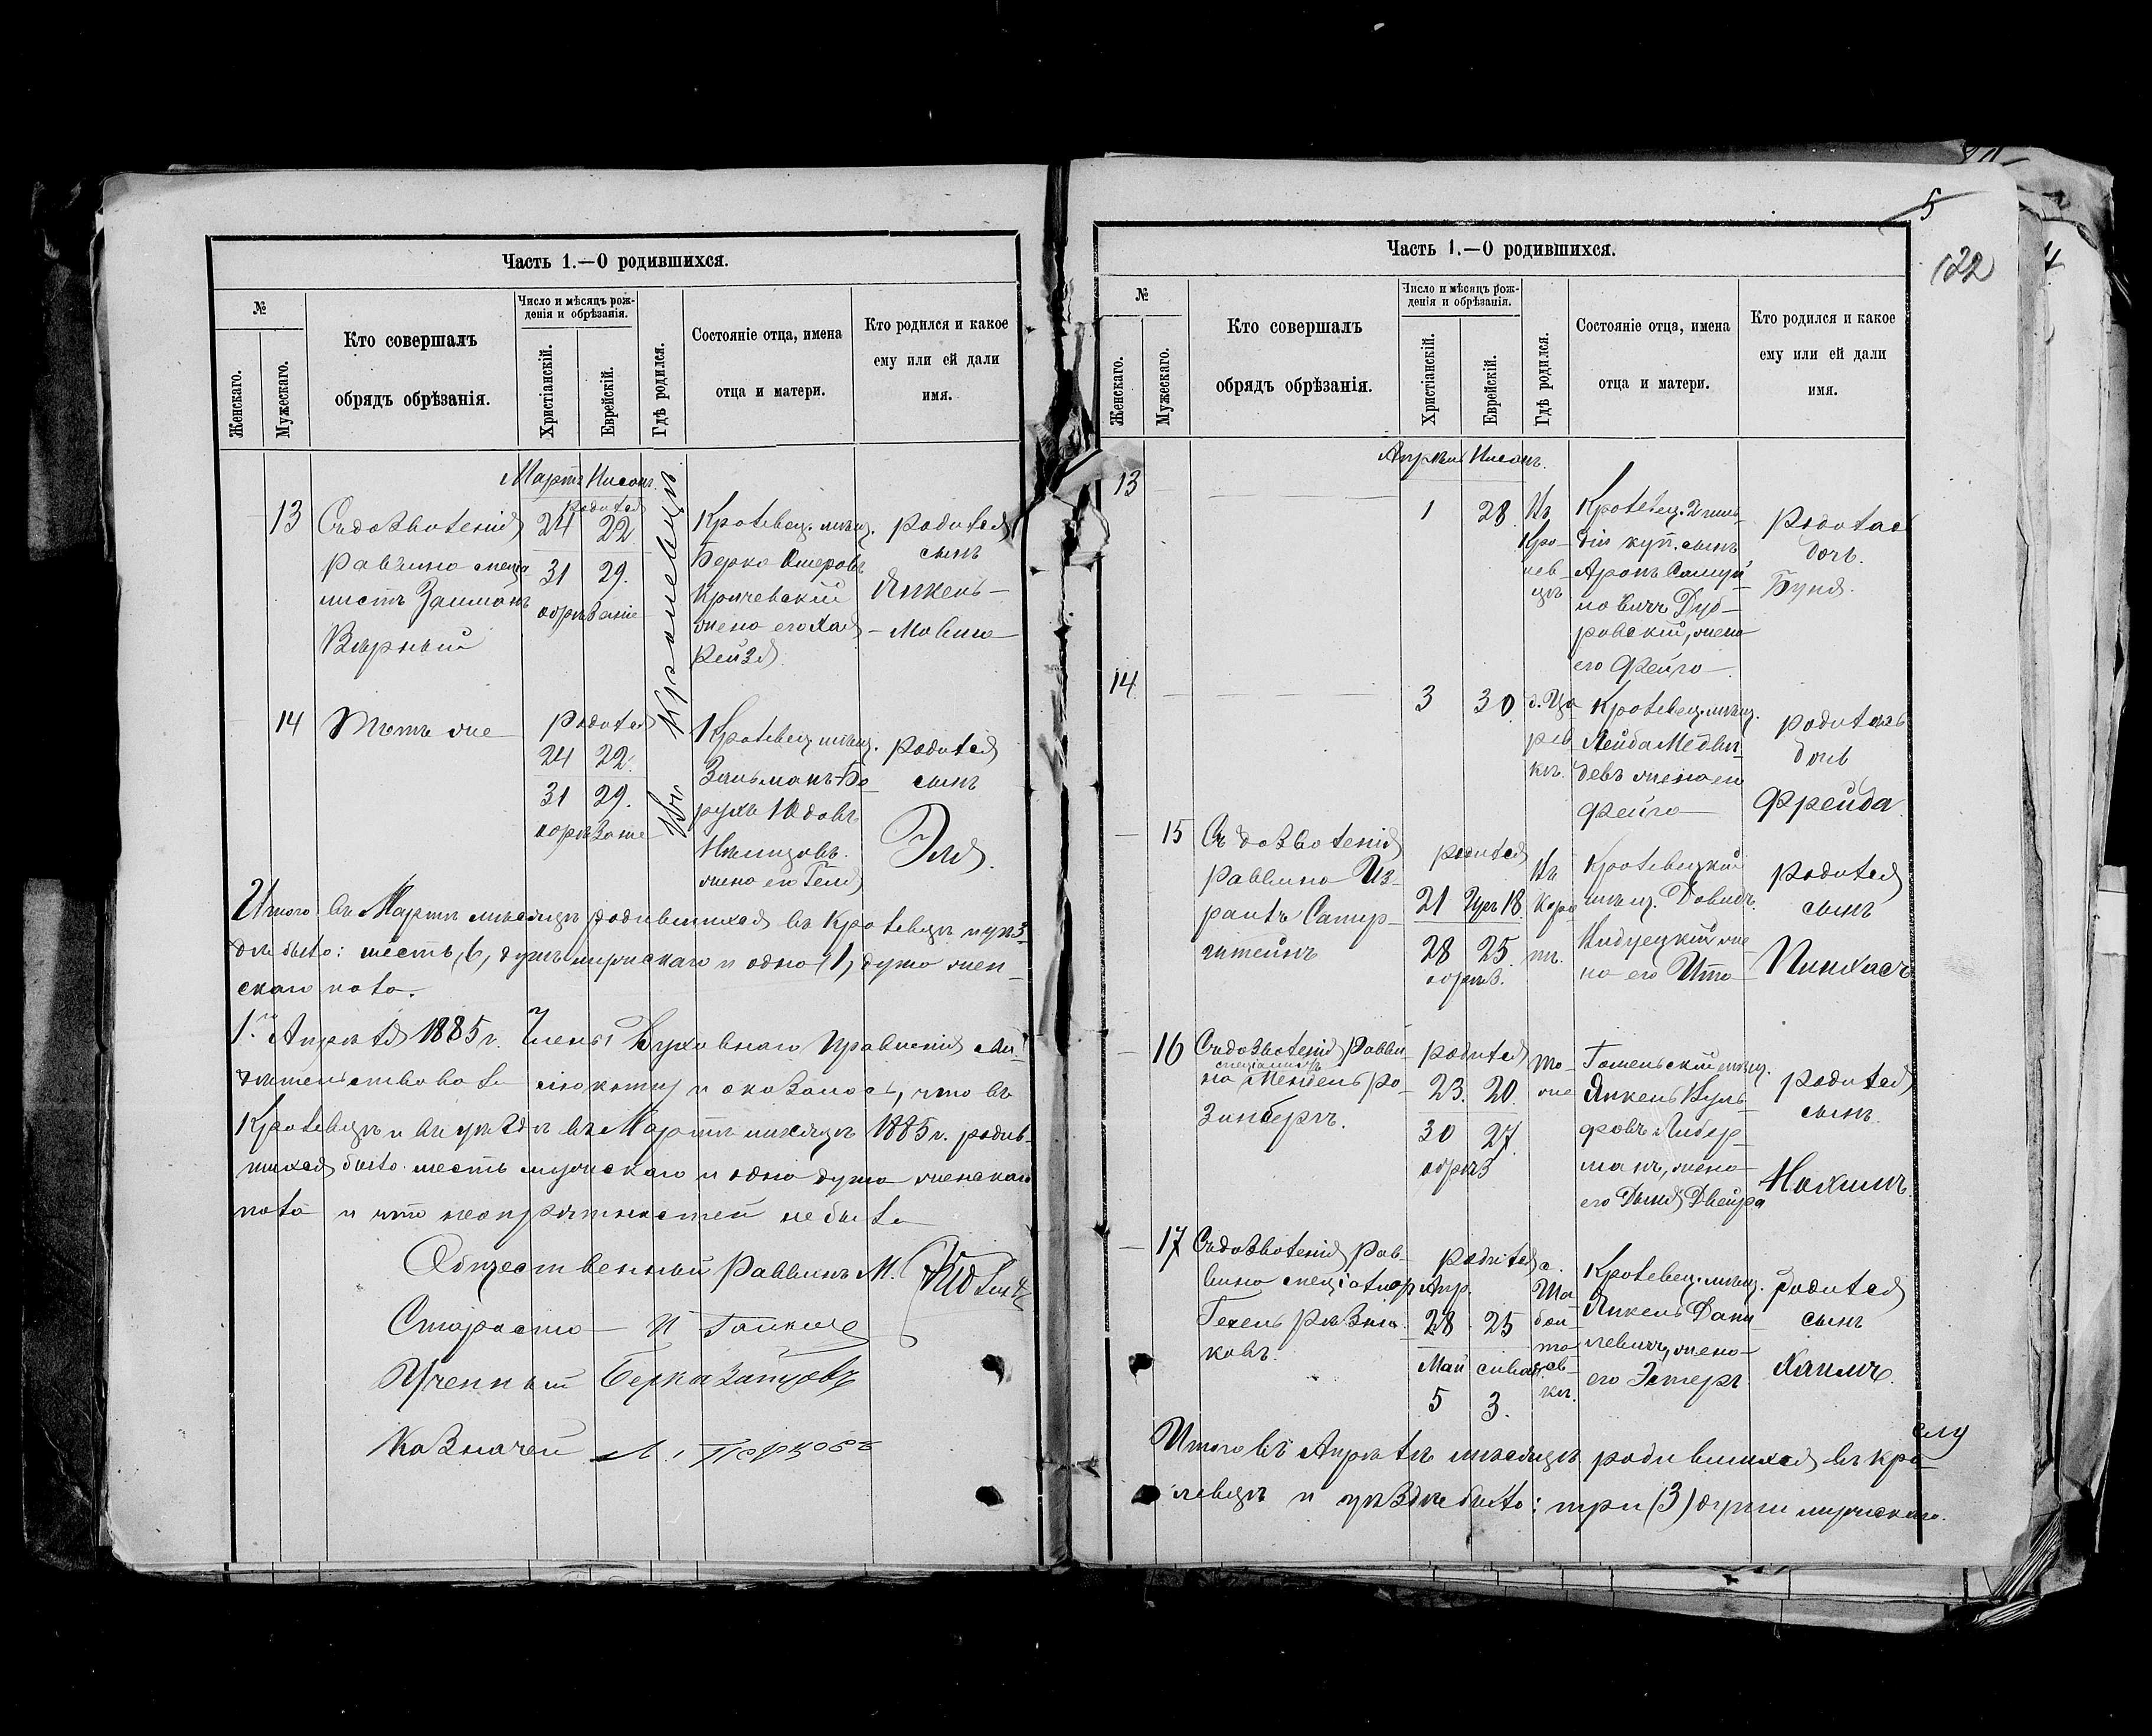 Часть 1.—О родившихся.
№
Женскаго.
Мужескаго.
Кто совершалъ
обрядъ обрѣзанія.
Число и мѣсяцъ рож-
денія и обрѣзанія.
Христіанскій.
Еврейскій.
Гдѣ родился.
Состояніе отца, имена
отца и матери.
Кто родился и какое
ему или ей дали
имя.
Мартъ Нисонъ.
Въ Кролевцѣ
13
Съ дозволенія
раввина специа
листъ Залманъ
Вѣрный
родился
24 22
31 29.
обрѣзаніе
Кролевец. мѣщ.
Берко
Кричевскій
жена его Хая
Рейзя.
родился
сынъ
Янкель-
Мовша
14
Тотъ же
родился
24 22.
31 29.
обрѣзаніе
Кролевец. мѣщ.
Зальманъ-Бо
рухъ Юдовъ
Нѣмцовъ.
жена его Геня
родился
сынъ
Эля.
Итого въ Мартѣ мѣсяцѣ родившихся въ Кролевцѣ и уѣз-
дѣ было: шесть, 6, душъ мужскаго и одна (1, душа жен-
скаго пола.
1.го Апрѣля 1885 г. Члены Духовнаго Правленія сви-
дѣтельствовали книжку и оказалось, что въ
Кролевцѣ и въ уѣздѣ въ Мартѣ мѣсяцѣ 1885 г. родив-
шихся было шесть мужскаго и одна душа женскаго
пола и что неопрятностей не было
Общественный Раввинъ М.
Староста
Ученный Берка Зайцовъ
Казначей Л.
5
122
Часть 1.—О родившихся.
№
Женскаго.
Мужескаго.
Кто совершалъ
обрядъ обрѣзанія.
Число и мѣсяцъ рож-
денія и обрѣзанія.
Христіанскій.
Еврейскій.
Гдѣ родился.
Состояніе отца, имена
отца и матери.
Кто родился и какое
ему или ей дали
имя.
Апрѣль Нисонъ.
13
1 28
Въ
Кро-
лев-
цѣ
Кролевец. 2 гиль-
діи куп. сынъ
Аронъ Самуй
ловичъ Дуб-
ровскій, жена
его Фейга
родилась
дочь.
Буня.
14
3 30
Кролевец. мѣщ.
Лейба Медви
девъ жена его
Фейга
родилась
дочь
Фрейда
15
Съ дозволенія
раввина Из-
раиль Сатир-
штейнъ
родился
21 Іуръ 18
28 25
обрѣз.
Въ
Коро
пѣ.
Кролевецкій
мѣщ. Довидъ
жена
на его Ита
родился
сынъ
Пинхасъ
16
Съ дозволенія Равви-
специалистъ
на Мендель Ро-
зинбергъ.
родился
23. 20
30 27
обрѣз
То-
же
Гомельскій мѣщ.
Янкель Вуль-
фовъ Либер-
манъ, жена
его Дыня Двейра
родился
сынъ.
Нохимъ
17
Съ дозволенія рав-
вина специалистъ
Гецель Рѣзни-
ковъ.
родился
Апр.
28 25
Май сивонъ
5 3.
с.
Кролевец. мѣщ.
Янкель Дани
левичъ, жена
его Эстеръ
родился
сынъ
Хаимъ
Итого въ Апрѣлѣ мѣсяцѣ родившихся въ Кро-
левцѣ и уѣздѣ было: три (3) души мужскаго.